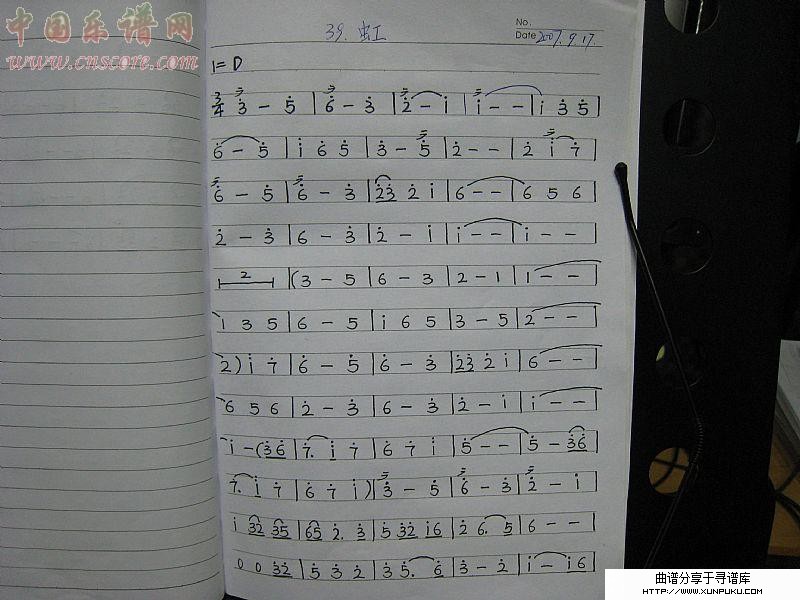 中国乐谱网
www.cnscore.com
No.
39. 虹
Date 2007.9.17.
1= D
3/4 3 - 5 | 6 - 3 | 2 - i | i - - | i 3 5 |
6 - 5 | i 6 5 | 3 - 5 | 2 - - | 2 i 7 |
6 - 5 | 6 - 3 | 23 2 i | 6 - - | 6 5 6 |
2 - 3 | 6 - 3 | 2 - i | i - - | i - - |
2 | (3 - 5 | 6 - 3 | 2 - 1 | 1 - - |
1 3 5 | 6 - 5 | i 6 5 | 3 - 5 | 2 - - |
2) i 7 | 6 - 5 | 6 - 3 | 23 2 i | 6 - - |
6 5 6 | 2 - 3 | 6 - 3 | 2 - i | i - - |
i - (36 | 7. i 7 | 6 7 i | 5 - - | 5 - 36 |
7. i 7 | 6 7 i) | 3 - 5 | 6 - 3 | 2 - i |
i 32 35 | 65 2. 3 | 5 32 i6 | 2 6. 5 | 6 - - |
0 0 32 | 5 3 2 | 3 5. 6 | 3 - 2 | i - i6 |
曲谱分享于寻谱库
HTTP://WWW.XUNPUKU.COM